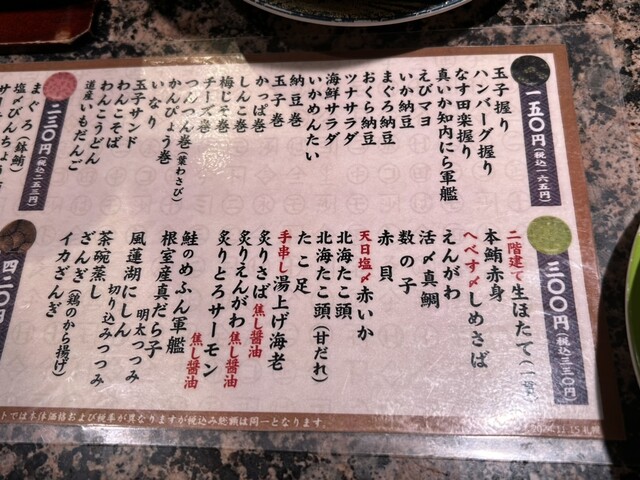 一五〇円(税込一六五円)
玉子握り
ハンバーグ握り
なす田楽握り
真いか知内にら軍艦
えびマヨ
いか納豆
まぐろ納豆
おくら納豆
ツナサラダ
海鮮サラダ
いかめんたい
納豆巻
玉子巻
かっぱ巻
しんこ巻
梅じそ巻
チーズ巻
つんつん巻(葉わさび)
かんぴょう巻
いなり
玉子サンド
わんこそば
わんこうどん
道産いもだんご
二三〇円(税込二五三円)
まぐろ(鉢鮪)
塩〆びんちょう
三〇〇円(税込三三〇円)
二階建て生ほたて(一貫)
本鮪赤身
へべす〆しめさば
えんがわ
活〆真鯛
数の子
赤貝
天日塩〆赤いか
北海たこ頭
北海たこ頭(甘だれ)
たこ足
手串し湯上げ海老
炙りさば焦し醤油
炙りえんがわ焦し醤油
炙りとろサーモン焦し醤油
鮭のめふん軍艦
根室産真だら子
明太つつみ
風蓮湖にしん
切り込みつつみ
茶碗蒸し
ざんぎ(鶏のから揚げ)
イカざんぎ
四二〇円
トでは本体価格および税率が異なりますが税込み総額は同一となります。
2024.11.15 札幌